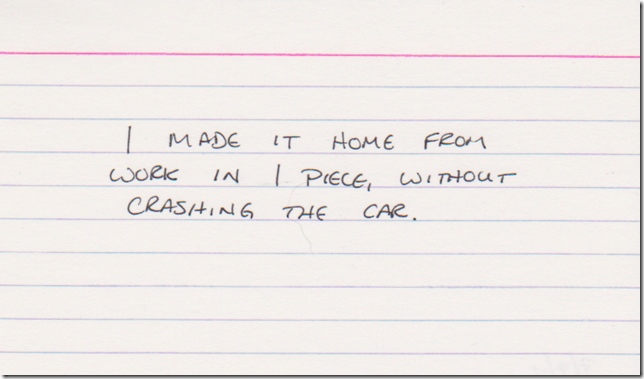 I MADE IT HOME FROM
WORK IN 1 PIECE, WITHOUT
CRASHING THE CAR.